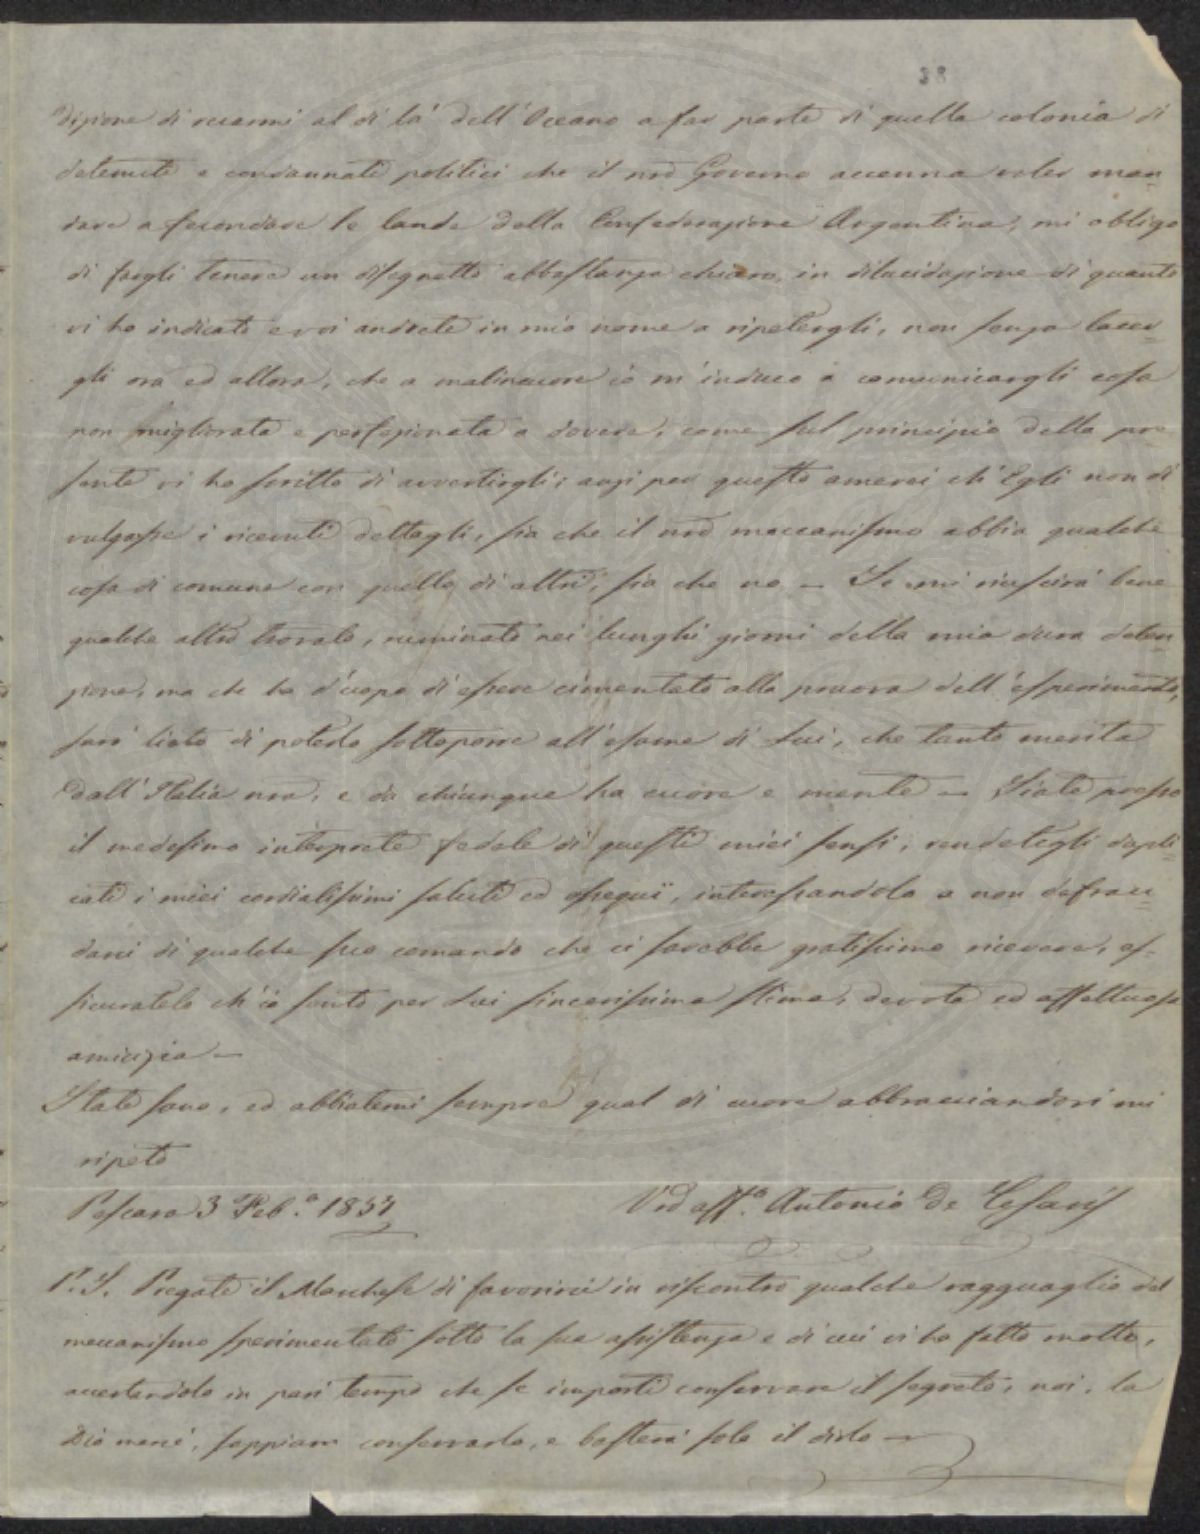 38
dizione di recarmi al di là dell'Oceano a far parte di quella colonia di
detenuti e condannati politici che il nro Governo accenna voler man=
dare a fecondare le lande della Confederazione Argentina, mi obbligo
di fargli tenere un disegnetto abbastanza chiaro, in dilucidazione di quanto
vi ho indicato e voi andrete in mio nome a ripetergli, non senza tacer=
gli ora ed allora, che a malincuore io m'induco a comunicargli cosa
non migliorata e perfezionata a dovere, come sul principio della pre=
sente vi ho scritto di avvertirgli; anzi per questo amerei ch'Egli non di
vulgasse i ricevuti dettagli, sia che il nro meccanismo abbia qualche
cosa di comune con quello di altri, sia che no — Se mi riuscirà bene
qualche altro trovato, ruminato nei lunghi giorni della mia dura deten=
zione, ma che ha d'uopo di essere cimentato alla pruova dell'esperimento,
sarò lieto di poterlo sottoporre all'esame di Lui, che tanto merita
dall'Italia nra, e da chiunque ha cuore e mente — Siate presso
il medesimo interprete fedele di questi miei sensi, rendetegli dupli=
cati i miei cordialissimi saluti ed ossequi, interessandolo a non defrau=
darci di qualche suo comando che ci sarebbe gratissimo ricevere, as=
sicuratelo ch'io sento per Lui sincerissima stima, devota ed affettuosa
amicizia —
State sano, ed abbiatemi sempre qual di cuore abbracciandovi mi
ripeto
Pescara 3 Feb.o 1857
Vro aff.o Antonio De Cesaris
P.S. Pregate il Marchese di favorirci in riscontro qualche ragguaglio del
meccanismo sperimentato sotto la sua assistenza e di cui vi ho fatto motto,
accertandolo in pari tempo che se importi conservare il segreto, noi, la
Dio mercé, sappiam conservarlo, e basterà solo il dirlo —